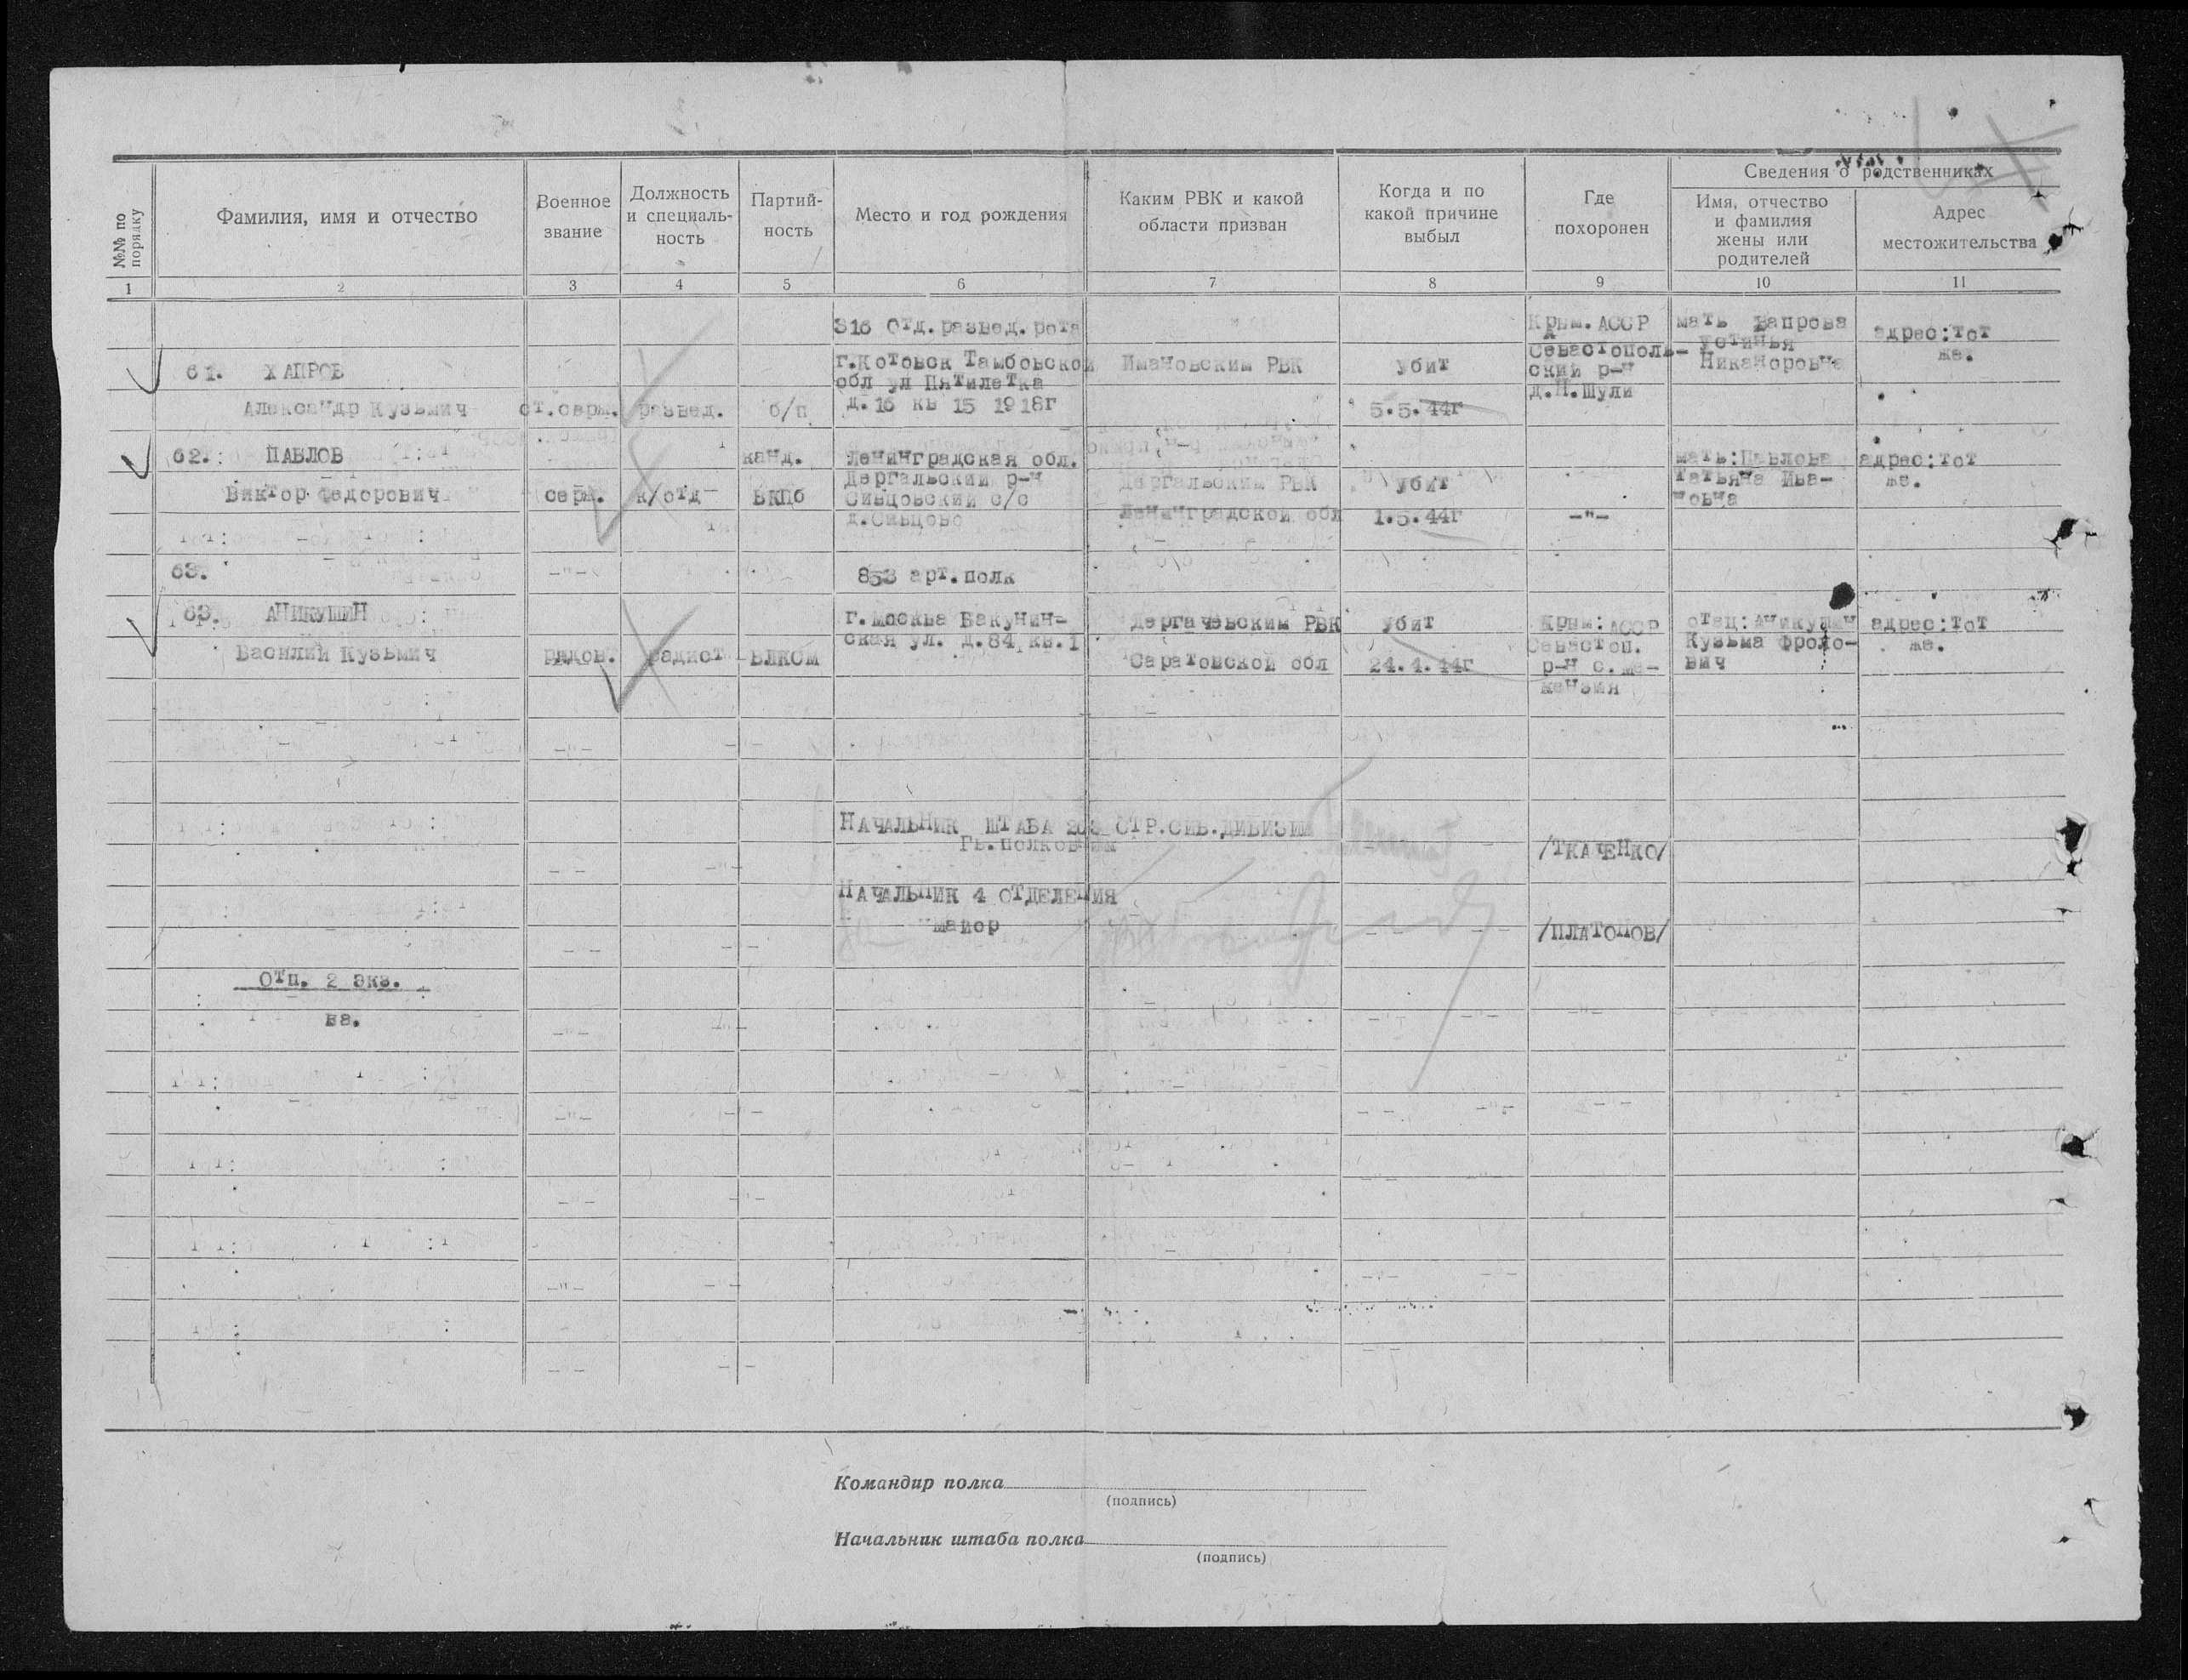 №№ по порядку
Фамилия, имя и отчество
Военное звание
Должность и специаль-ность
Партий-ность
Место и год рождения
Каким РВК и какой области призван
Когда и по какой причине выбыл
Где похоронен
Сведения о родственниках
Имя, отчество и фамилия жены или родителей
Адрес местожительства
1 2 3 4 5 6 7 8 9 10 11
316 Отд.развед.рота
61. ХАПРОВ
Александр Кузьмич
ст.серж.
развед.
б/п
г.Котовск Тамбовской
обл ул Пятилетка
д.16 кв 15 1918г
Имановским РВК
убит
5.5.44г
Крым.АССР
Севастополь-
ский р-н
д.Н.Шули
мать Хапрова
Устинья
Никаноровна
адрес:тот
же.
62. ПАВЛОВ
Виктор Федорович
серж.
к/отд
канд.
ВКПб
Ленинградская обл.
Дергальский р-н
Сивцовский с/с
д.Сивцово
Дергальским РВК
Ленинградской обл
убит
1.5.44г
-"-
мать:Павлова
Татьяна Ива-
новна
адрес:тот
же.
63.
853 арт.полк
63. АНИКУШИН
Василий Кузьмич
рядов.
радист
ВЛКСМ
г.Москва Бакунин-
ская ул. д.84 кв.1
Дергачевским РВК
Саратовской обл
убит
24.4.44г
Крым:АССР
Севастоп.
р-н с.
отец:Аникушин
Кузьма Фроло-
вич
адрес:тот
же.
НАЧАЛЬНИК ШТАБА 203 СТР.СИБ.ДИВИЗИИ
Гв.полковник
/ТКАЧЕНКО/
НАЧАЛЬНИК 4 ОТДЕЛЕНИЯ
майор
/ПЛАТОНОВ/
Отп. 2 экз.
ва.
Командир полка
(подпись)
Начальник штаба полка
(подпись)